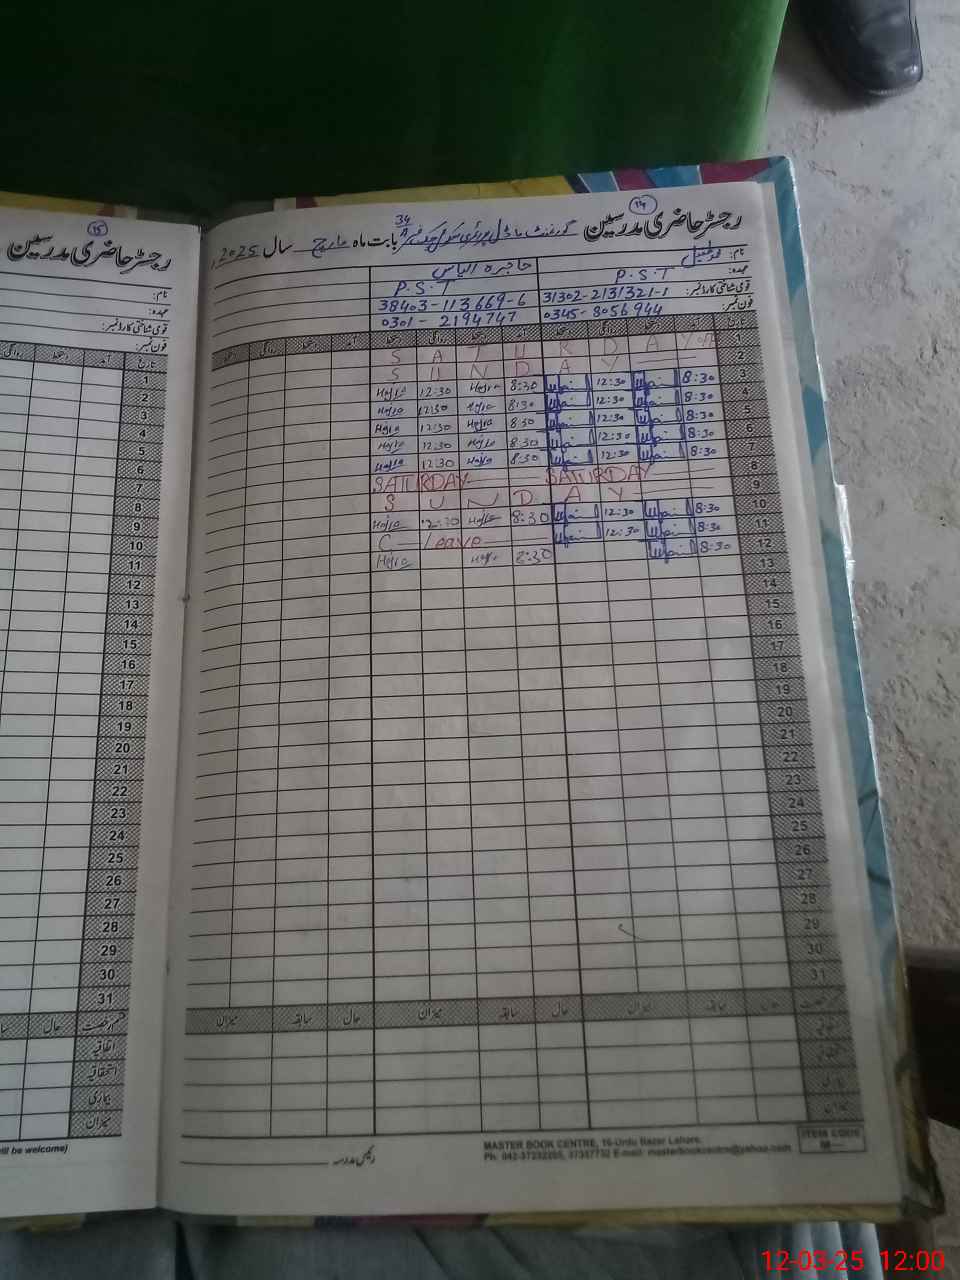 ۱۴
رجسٹر حاضری مدرسین گورنمنٹ ماڈل پرائمری سکول 34 بابت ماہ مارچ سال 2025ء
نام: محمد طفیل حاجرہ الیاس
عہدہ: P.S.T P.S.T
قومی شناختی کارڈ نمبر: 31302-2131321-1 38403-113669-6
فون نمبر: 0345-8056944 0301-2194747
تاریخ آمد دستخط روانگی دستخط آمد دستخط روانگی دستخط آمد دستخط روانگی دستخط
1 SATURDAY
2 SUNDAY
3 8:30 12:30 8:30 Hajra 12:30 Hajra
4 8:30 12:30 8:30 Hajra 12:30 Hajra
5 8:30 12:30 8:30 Hajra 12:30 Hajra
6 8:30 12:30 8:30 Hajra 12:30 Hajra
7 8:30 12:30 8:30 Hajra 12:30 Hajra
8 SATURDAY SATURDAY
9 SUNDAY
10 8:30 12:30 8:30 Hajra 12:30 Hajra
11 8:30 12:30 C Leave
12 8:30 8:30 Hajra Hajra
13
14
15
16
17
18
19
20
21
22
23
24
25
26
27
28
29
30
31
قسم رخصت حال سابقہ میزان حال سابقہ میزان حال سابقہ میزان
اتفاقیہ
استحقاقیہ
بیماری
میزان
ITEM CODE
MASTER BOOK CENTRE, 16-Urdu Bazar Lahore.
رئیس مدرسہ
۱۵
رجسٹر حاضری مدرسین
نام:
عہدہ:
قومی شناختی کارڈ نمبر:
فون نمبر:
تاریخ آمد دستخط روانگی
1
2
3
4
5
6
7
8
9
10
11
12
13
14
15
16
17
18
19
20
21
22
23
24
25
26
27
28
29
30
31
قسم رخصت حال
اتفاقیہ
استحقاقیہ
بیماری
میزان
will be welcome)
12-03-25 12:00